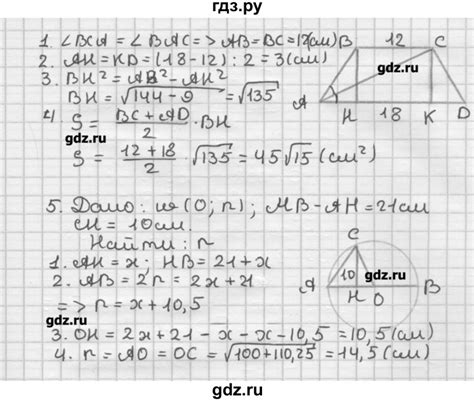 гдз.ру
1. ∠BCA = ∠BAC => AB = BC = 12(см)
2. AH = KD = (18-12) : 2 = 3(см)
3. BH² = AB² - AH²
BH = √144-9 = √135
4. S = BC + AD / 2 · BH
gdz.ru
S = 12 + 18 / 2 · √135 = 45√15 (см²)
B 12 C
A H 18 K D
gdz.ru
5. Дано: ω (O; r); HB - AH = 21см
CH = 10см.
Найти: r
1. AH = x; HB = 21 + x
2. AB = 2r = 2x + 21
=> r = x + 10,5
gdz.ru
C
10 gdz.ru
A H O B
3. OH = 2x + 21 - x - x - 10,5 = 10,5 (см)
4. r = AO = OC = √100 + 110,25 = 14,5 (см)
gdz.ru
gdz.ru